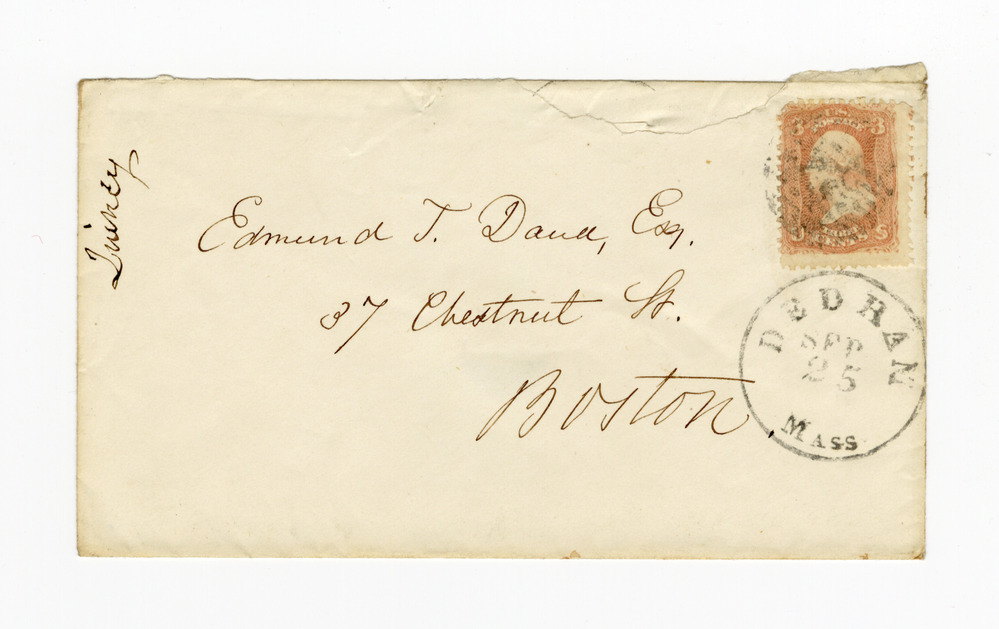 Quincy
Edmund T. Dana, Esq.
37 Chestnut St.
Boston.
3 U.S. POSTAGE 3
CENTS S
DEDHAM
SEP
25
MASS